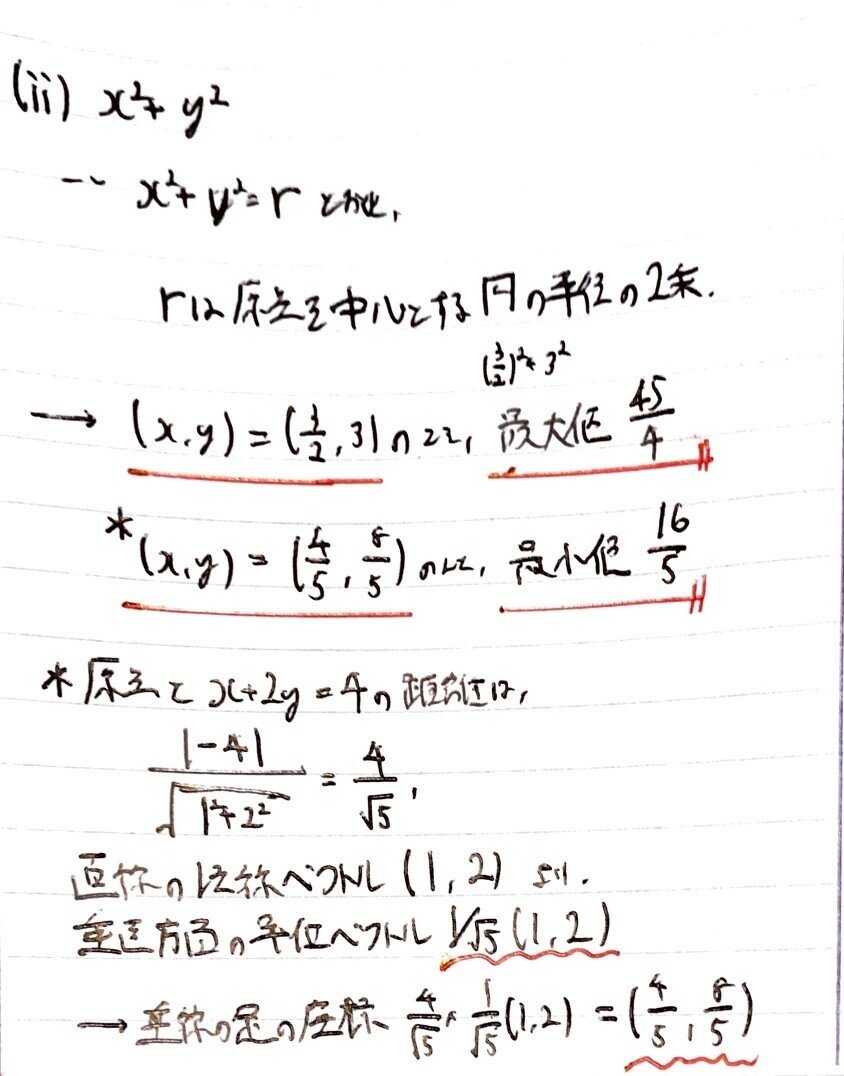 (ii) x²+ y²
-- x²+ y²= r とおくと,
rは原点を中心とする円の半径の2乗.
(3/2)²+ 3²
→ (x,y) = (3/2, 3) のとき, 最大値 45/4
* (x,y) = (4/5, 8/5) のとき, 最小値 16/5
* 原点と x+2y = 4 の距離は,
|-4| / √(1²+2²) = 4/√5,
直線の法線ベクトル (1, 2) より.
垂直方向の単位ベクトル 1/√5 (1, 2)
→ 垂線の足の座標 4/√5 × 1/√5 (1, 2) = (4/5, 8/5)